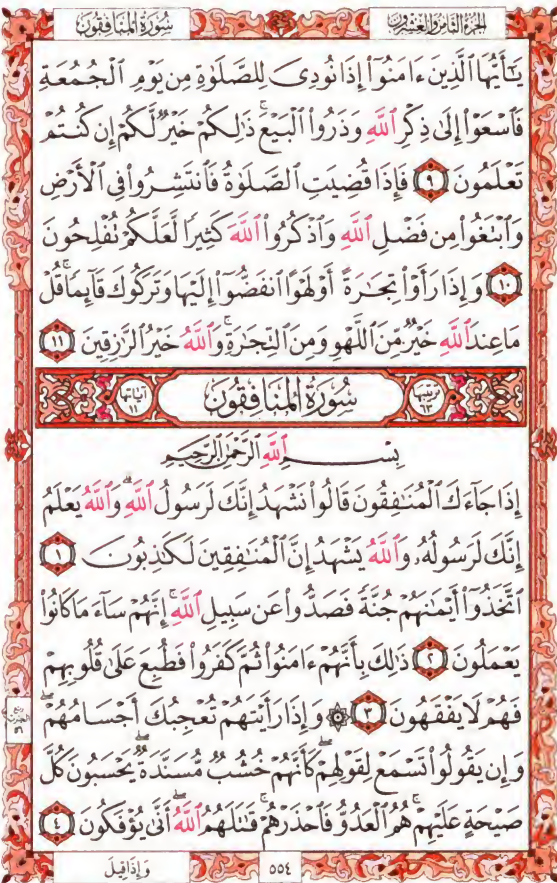 الجزء الثامن والعشرون
سورة المنافقون
يَٰٓأَيُّهَا ٱلَّذِينَ ءَامَنُوٓا۟ إِذَا نُودِىَ لِلصَّلَوٰةِ مِن يَوْمِ ٱلْجُمُعَةِ
فَٱسْعَوْا۟ إِلَىٰ ذِكْرِ ٱللَّهِ وَذَرُوا۟ ٱلْبَيْعَ ۚ ذَٰلِكُمْ خَيْرٌ لَّكُمْ إِن كُنتُمْ
تَعْلَمُونَ ٩ فَإِذَا قُضِيَتِ ٱلصَّلَوٰةُ فَٱنتَشِرُوا۟ فِى ٱلْأَرْضِ
وَٱبْتَغُوا۟ مِن فَضْلِ ٱللَّهِ وَٱذْكُرُوا۟ ٱللَّهَ كَثِيرًا لَّعَلَّكُمْ تُفْلِحُونَ
١٠ وَإِذَا رَأَوْا۟ تِجَٰرَةً أَوْ لَهْوًا ٱنفَضُّوٓا۟ إِلَيْهَا وَتَرَكُوكَ قَآئِمًا ۚ قُلْ
مَا عِندَ ٱللَّهِ خَيْرٌ مِّنَ ٱللَّهْوِ وَمِنَ ٱلتِّجَٰرَةِ ۚ وَٱللَّهُ خَيْرُ ٱلرَّٰزِقِينَ ١١
ترتيبها ٦٣ سُورَةُ المُنَافِقُونَ آياتها ١١
بِسْمِ ٱللَّهِ ٱلرَّحْمَٰنِ ٱلرَّحِيمِ
إِذَا جَآءَكَ ٱلْمُنَٰفِقُونَ قَالُوا۟ نَشْهَدُ إِنَّكَ لَرَسُولُ ٱللَّهِ ۗ وَٱللَّهُ يَعْلَمُ
إِنَّكَ لَرَسُولُهُۥ وَٱللَّهُ يَشْهَدُ إِنَّ ٱلْمُنَٰفِقِينَ لَكَٰذِبُونَ ١
ٱتَّخَذُوٓا۟ أَيْمَٰنَهُمْ جُنَّةً فَصَدُّوا۟ عَن سَبِيلِ ٱللَّهِ ۚ إِنَّهُمْ سَآءَ مَا كَانُوا۟
يَعْمَلُونَ ٢ ذَٰلِكَ بِأَنَّهُمْ ءَامَنُوا۟ ثُمَّ كَفَرُوا۟ فَطُبِعَ عَلَىٰ قُلُوبِهِمْ
فَهُمْ لَا يَفْقَهُونَ ٣ ۞ وَإِذَا رَأَيْتَهُمْ تُعْجِبُكَ أَجْسَامُهُمْ ۖ
وَإِن يَقُولُوا۟ تَسْمَعْ لِقَوْلِهِمْ ۖ كَأَنَّهُمْ خُشُبٌ مُّسَنَّدَةٌ ۖ يَحْسَبُونَ كُلَّ
صَيْحَةٍ عَلَيْهِمْ ۚ هُمُ ٱلْعَدُوُّ فَٱحْذَرْهُمْ ۚ قَٰتَلَهُمُ ٱللَّهُ ۖ أَنَّىٰ يُؤْفَكُونَ ٤
٥٥٤
وَإِذَا قِيلَ